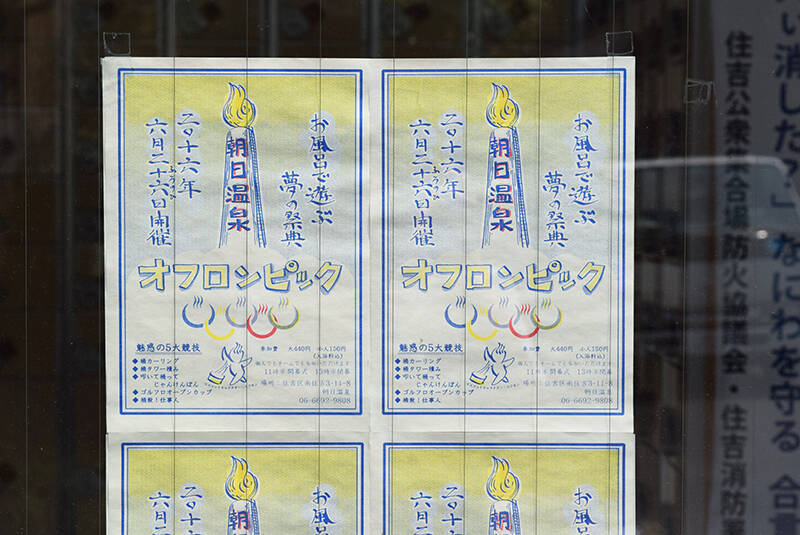 お風呂で遊ぶ
夢の祭典
朝日温泉
二〇十六年
六月二十六日開催
オフロンピック
魅惑の5大競技
◆桶カーリング
◆桶タワー積み
◆叩いて桶って
じゃんけんぽん
◆ゴルフロオープンカップ
◆桶殺!仕事人
参加費 大440円 小人150円
(入浴料込)
11時半開幕式
場所:住吉区南住吉3-11-8
朝日温泉
06-6692-9808
お風呂で遊ぶ
夢の祭典
朝日温泉
二〇十六年
六月二十六日開催
オフロンピック
魅惑の5大競技
◆桶カーリング
◆桶タワー積み
◆叩いて桶って
じゃんけんぽん
◆ゴルフロオープンカップ
◆桶殺!仕事人
参加費 大440円 小人150円
(入浴料込)
11時半開幕式
場所:住吉区南住吉3-11-8
朝日温泉
06-6692-9808
お風
朝
二〇十
六月二
お風
朝
二〇十
六月二
消した?」なにわを守る
住吉公衆集合場防火協議会・住吉消防署